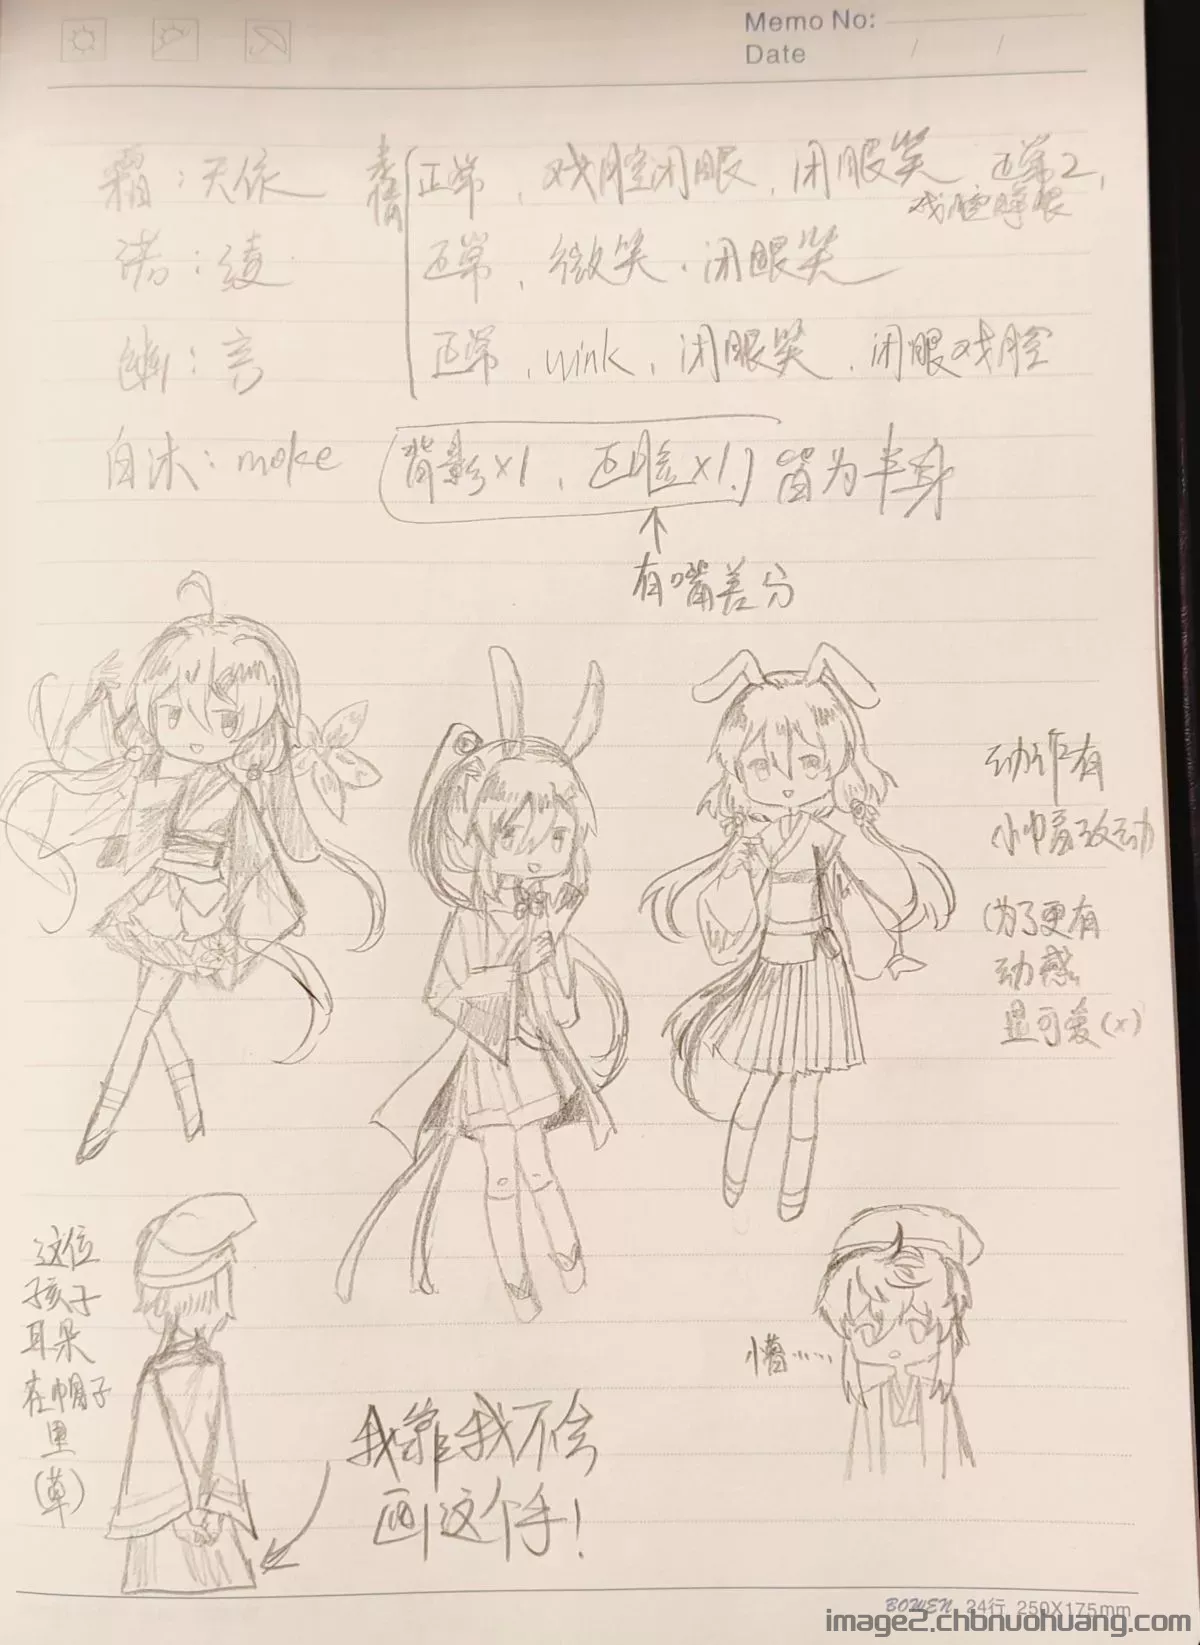 Memo No:
Date / /
霜：天依 表情 正常，戏腔闭眼，闭眼笑 正常2，
戏腔睁眼
诺：绫 正常，微笑，闭眼笑
幽：言 正常，wink，闭眼笑，闭眼戏腔
白沐：moke (背影x1，正脸x1) 皆为半身
有嘴差分
动作有
小幅度改动
(为了更有
动感
且可爱(x)
这位
孩子
耳朵
在帽子
里
(草)
懵……
我靠我不会
画这个手！
BOWEN 24行 250X175mm
image2.chbnuohuang.com